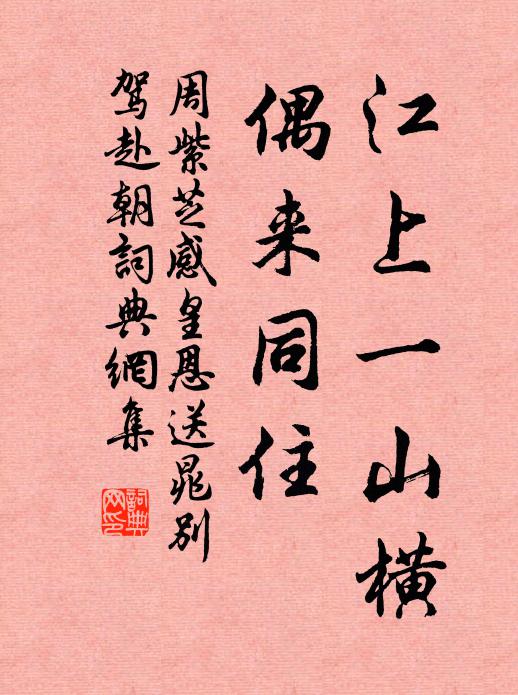 江上一山橫
偶来同住
周紫芝感皇恩送晁别
驾赴朝詞典網集
詞典
网印